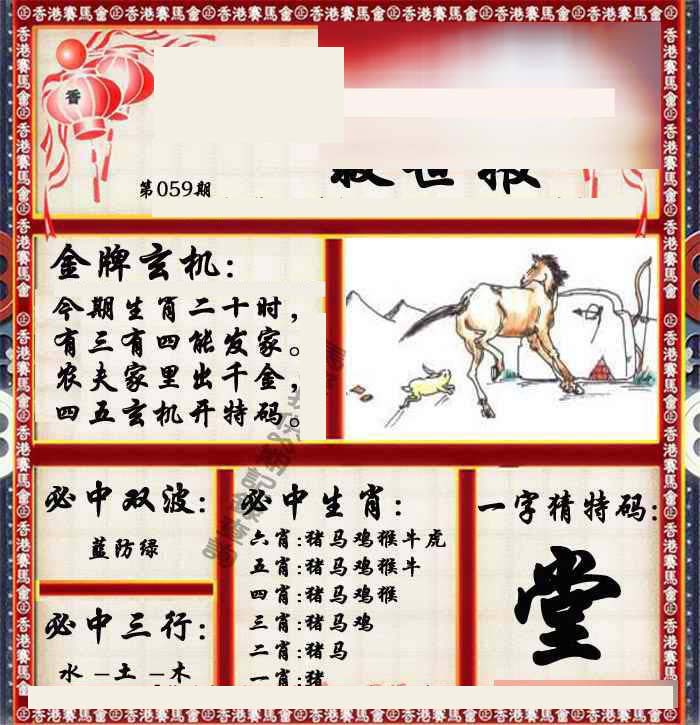 ㊣香港賽馬會㊣香港賽馬會㊣香港賽馬會㊣香港賽馬會㊣香港賽馬會㊣香港賽馬會㊣香港賽馬會
香
第059期
金牌玄机:
今期生肖二十时，
有三有四能发家。
农夫家里出千金，
四五玄机开特码。
必中双波:
蓝防绿
必中三行:
水－土－木
必中生肖:
六肖:猪马鸡猴牛虎
五肖:猪马鸡猴牛
四肖:猪马鸡猴
三肖:猪马鸡
二肖:猪马
一肖:猪
一字猜特码:
堂